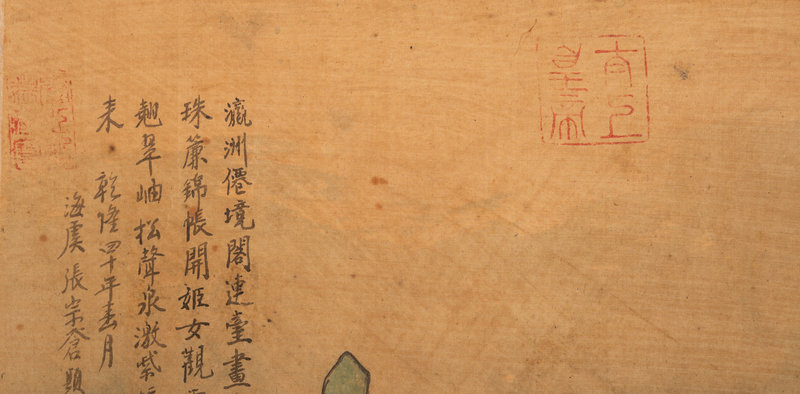 瀛洲僊境閣連臺畫
珠簾錦帳開姬女觀
翹翠岫松聲泉激紫
来 乾隆四十年春月
海虞張宗蒼題